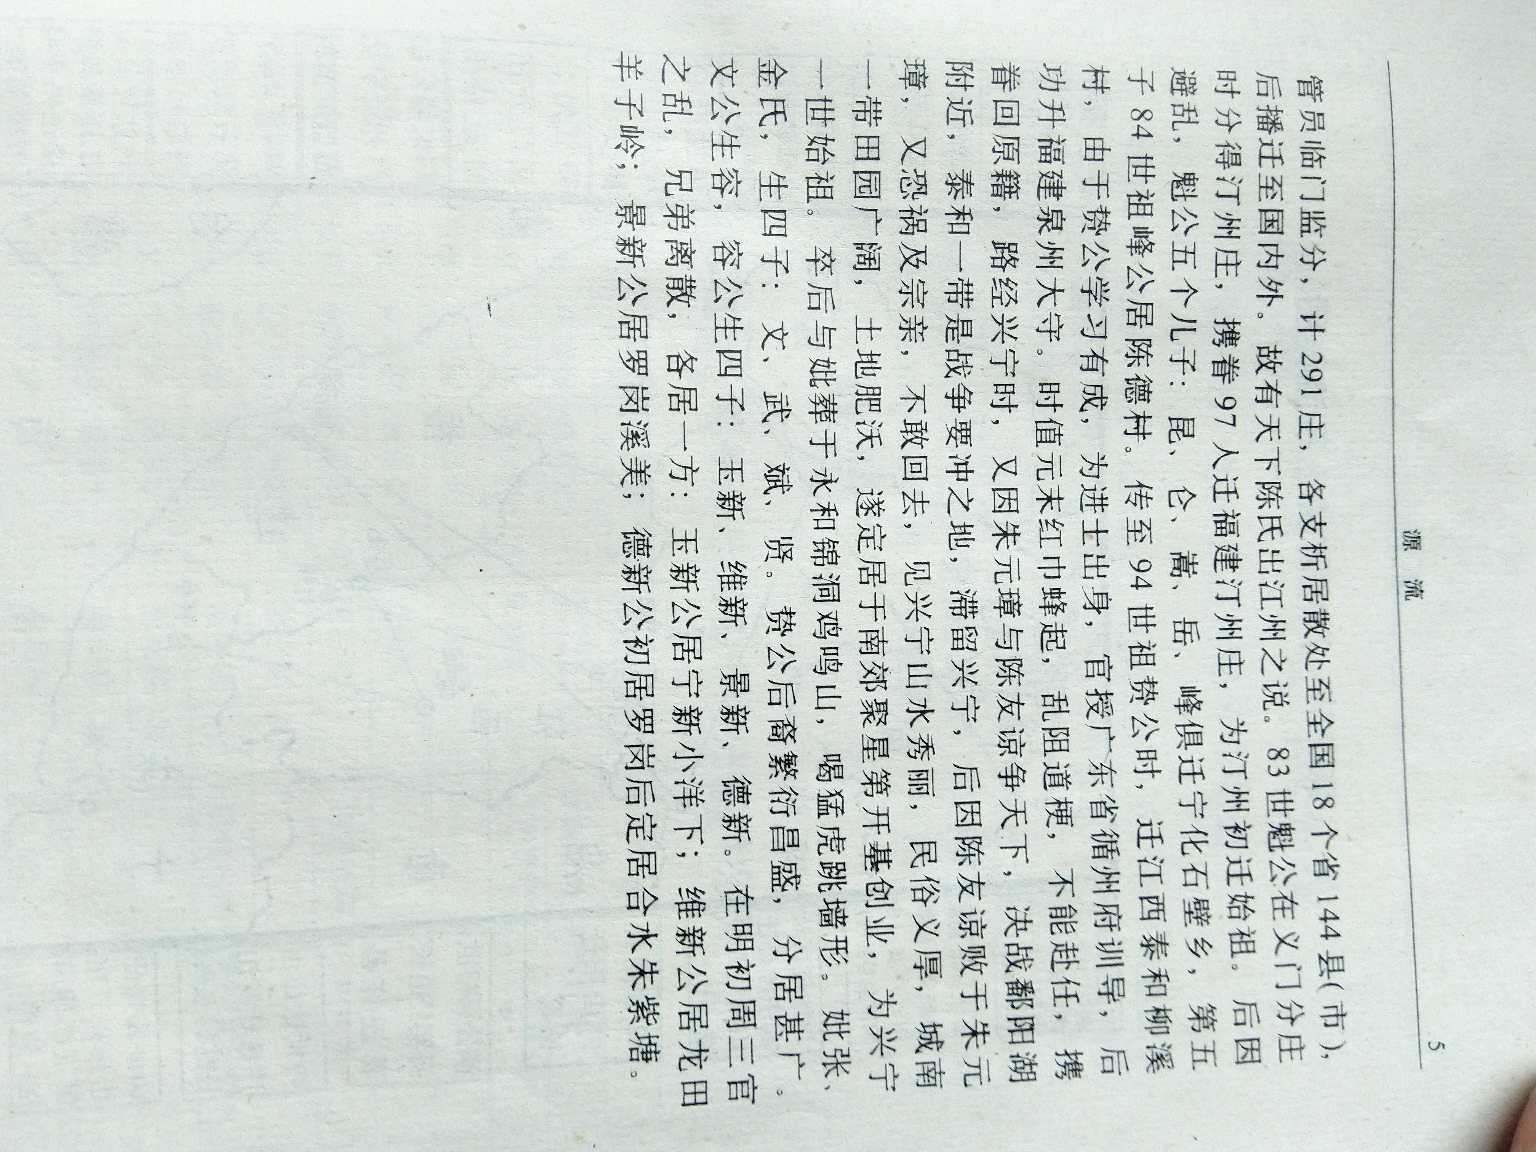 源 流 5
管员临门监分，计291庄，各支析居散处至全国18个省144县(市)，
后播迁至国内外。故有天下陈氏出江州之说。83世魁公在义门分庄
时分得汀州庄，携眷97人迁福建汀州庄，为汀州初迁始祖。后因
避乱，魁公五个儿子：昆、仑、嵩、岳、峰俱迁宁化石壁乡，第五
子84世祖峰公居陈德村。传至94世祖贽公时，迁江西泰和柳溪
村，由于贽公学习有成，为进士出身，官授广东省循州府训导，后
功升福建泉州大守。时值元末红巾蜂起，乱阻道梗，不能赴任，携
眷回原籍，路经兴宁时，又因朱元璋与陈友谅争天下，决战鄱阳湖
附近，泰和一带是战争要冲之地，滞留兴宁，后因陈友谅败于朱元
璋，又恐祸及宗亲，不敢回去，见兴宁山水秀丽，民俗义厚，城南
一带田园广阔，土地肥沃，遂定居于南郊聚星第开基创业，为兴宁
一世始祖。卒后与妣葬于永和锦洞鸡鸣山，喝猛虎跳墙形。妣张、
金氏，生四子：文、武、斌、贤。贽公后裔繁衍昌盛，分居甚广。
文公生容，容公生四子：玉新、维新、景新、德新。在明初周三官
之乱，兄弟离散，各居一方：玉新公居宁新小洋下；维新公居龙田
羊子岭；景新公居罗岗溪美；德新公初居罗岗后定居合水朱紫塘。